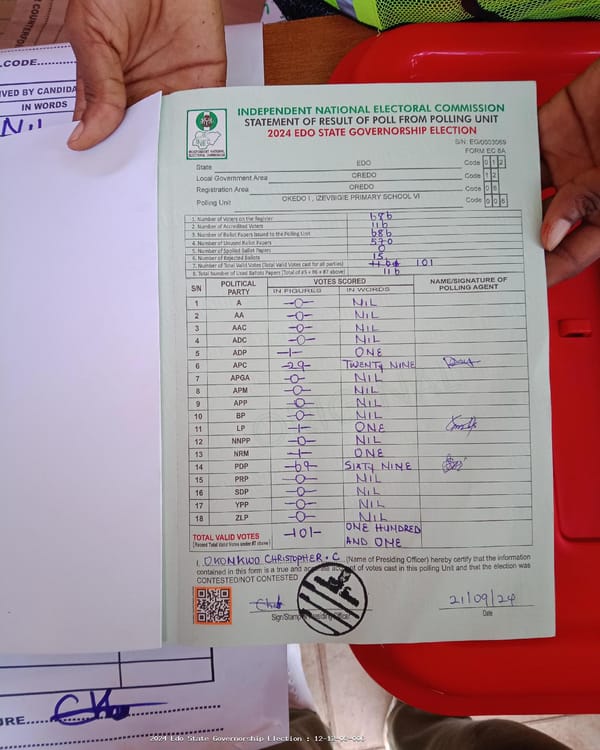 COUNTERFO
LCODE
IVED BY CANDIDA
IN WORDS
NIL
INDEPENDENT NATIONAL ELECTORAL COMMISSION
STATEMENT OF RESULT OF POLL FROM POLLING UNIT
2024 EDO STATE GOVERNORSHIP ELECTION
INEC
INDEPENDENT NATIONAL ELECTORAL COMMISSION
S/N: EG/0003069
FORM EC 8A
State EDO Code 0 1 2
Local Government Area OREDO Code 1 2
Registration Area OREDO Code 0 6
Polling Unit OKEDO I, IZEVBIGIE PRIMARY SCHOOL VI Code 0 0 6
1. Number of Voters on the Register 686
2. Number of Accredited Voters 116
3. Number of Ballot Papers Issued to the Polling Unit 686
4. Number of Unused Ballot Papers 570
5. Number of Spoiled Ballot Papers 0
6. Number of Rejected Ballots 15
7. Number of Total Valid Votes (Total Valid Votes cast for all parties) 116 101
8. Total Number of Used Ballots Papers (Total of #5 + #6 + #7 above) 116
S/N POLITICAL PARTY VOTES SCORED NAME/SIGNATURE OF POLLING AGENT
IN FIGURES IN WORDS
1 A -0- NIL
2 AA -0- NIL
3 AAC -0- NIL
4 ADC -0- NIL
5 ADP -1- ONE
6 APC -29- TWENTY NINE
7 APGA -0- NIL
8 APM -0- NIL
9 APP -0- NIL
10 BP -0- NIL
11 LP -1- ONE
12 NNPP -0- NIL
13 NRM -1- ONE
14 PDP -69- SIXTY NINE
15 PRP -0- NIL
16 SDP -0- NIL
17 YPP -0- NIL
18 ZLP -0- NIL
TOTAL VALID VOTES -101- ONE HUNDRED AND ONE
(Record Total Valid Votes under #7 above)
I, OKONKWO CHRISTOPHER . C (Name of Presiding Officer) hereby certify that the information
contained in this form is a true and of votes cast in this polling Unit and that the election was
CONTESTED/NOT CONTESTED
21/09/24
Sign/Stamp Presiding Officer
Date
URE
2024 Edo State Governorship Election : 12-12-06-006